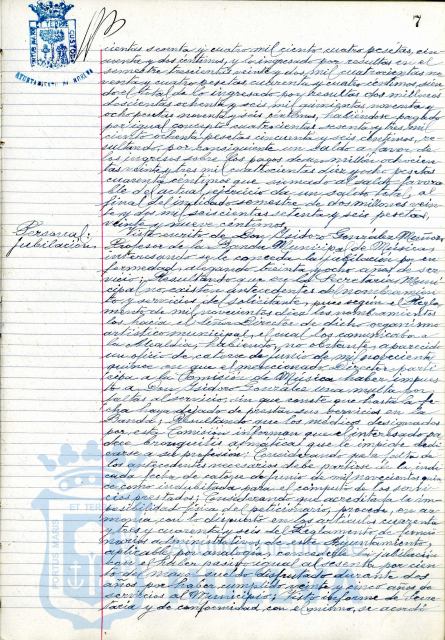 7
AYUNTAMIENTO DE
cientas setenta y cuatro mil ciento cuatro pesetas, cin-
cuenta y dos céntimos, y lo ingresado por resultas en el
semestre trescientas veinte y dos mil cuatrocientas no-
venta y cuatro pesetas cuarenta y cuatro céntimos, sien-
do el total de lo ingresado por resultas dos millones
doscientas ochenta y seis mil quinientas noventa y
ocho pesetas noventa y seis céntimos, habiéndose pagado
por igual concepto cuatrocientas sesenta y tres mil
ciento ochenta pesetas cincuenta y seis céntimos, re-
sultando por consiguiente un saldo a favor de
los ingresos sobre los pagos de un millón ochocien-
tas veinte y tres mil cuatrocientas diez y ocho pesetas
cuarenta céntimos que sumado al saldo favora-
ble del actual ejercicio da un saldo total, al
final del indicado semestre de dos millones vein-
te y dos mil seiscientas setenta y seis pesetas,
veinte y nueve céntimos.
Personal,
jubilación.
Visto escrito de Don Isidro González Muñoz,
Profesor de la Banda Municipal de Música,
interesando se le conceda la jubilación por en-
fermedad, alegando treinta y ocho años de ser-
vicio; Resultando que en la Secretaría Muni-
cipal no existen antecedentes del nombramien-
to y servicios del solicitante, pues según el Regla-
mento de mil novecientos diez los nombramientos
los hacía el Señor Director de dicho organismo
artístico municipal, el cual los comunicaba a
la Alcaldía, habiendo, no obstante, aparecido
un oficio de catorce de junio de mil novecientos
quince en que el mencionado Director parti-
cipa a la Comisión de Música haber impues-
to a Don Isidro González una multa por
faltas al servicio, sin que conste que hasta la fe-
cha haya dejado de prestar sus servicios en la
Banda; Resultando que los médicos designados
por esta Comisión informan que el interesado pa-
dece bronquitis asmática que le impide dedi-
carse a su profesión; Considerando que a falta de
los antecedentes necesarios debe partirse de la indi-
cada fecha de catorce de junio de mil novecientos quin-
ce como indubitada para el cómputo de los servi-
cios prestados; Considerando que acreditada la im-
posibilidad física del peticionario, procede, en ar-
monía con lo dispuesto en los artículos cuarenta
y tres y cuarenta y seis del Reglamento de funcio-
narios administrativos de este Ayuntamiento,
aplicable por analogía, concederle la jubilación
con el haber pasivo igual al sesenta por cien-
to del mayor sueldo disfrutado durante dos
años por haber cumplido veinte y cinco años de
servicios al Municipio; Visto informe de Secre-
taría y de conformidad con el mismo, se acordó